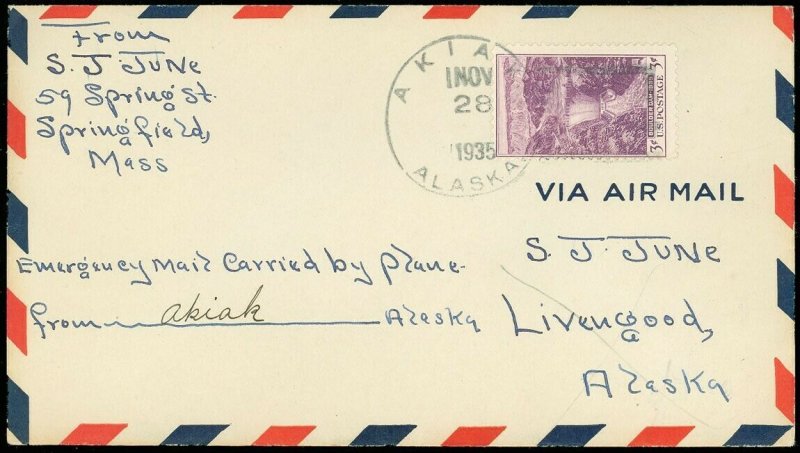 From
S. J. JUNE
59 Spring St.
Springfield,
Mass
AKIAK
1 NOV
28
1935
ALASKA
3¢
U.S. POSTAGE
3¢
VIA AIR MAIL
S. J. JUNE
Livengood,
Alaska
Emergency Mail Carried by plane
from akiak Alaska